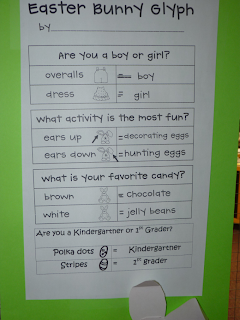 Easter Bunny Glyph
by
Are you a boy or girl?
overalls = boy
dress = girl
What activity is the most fun?
ears up =decorating eggs
ears down =hunting eggs
What is your favorite candy?
brown = chocolate
white = jelly beans
Are you a Kindergartner or 1st Grader?
Polka dots = Kindergartner
Stripes = 1st grader